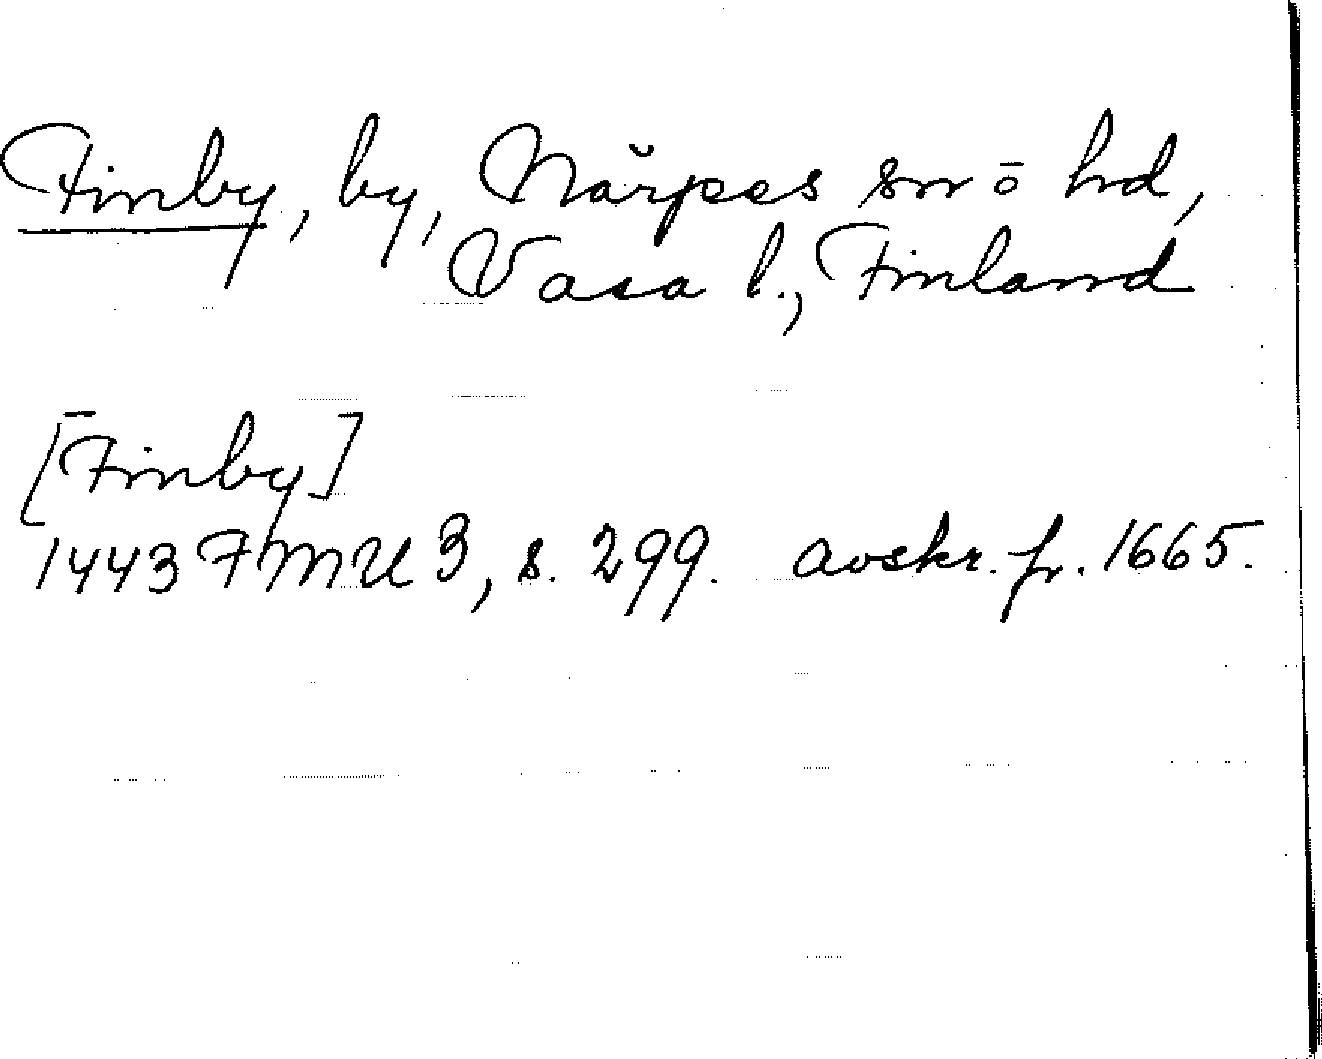 Finby, by, Närpes sn ō hd,
Vasa l., Finland
[Finby]
1443 FMU 3, s. 299. avskr. fr. 1665.